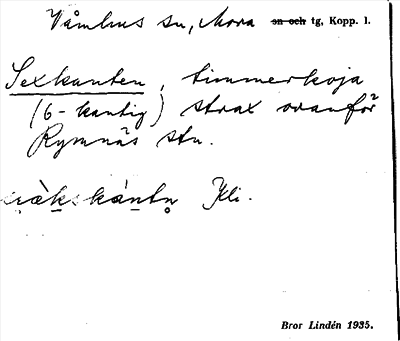 Våmhus sn, Mora sn och tg, Kopp. l.
Sexkanten, timmerkoja
(6-kantig) strax ovanför
Rymnäs stn.
Bror Lindén 1935.